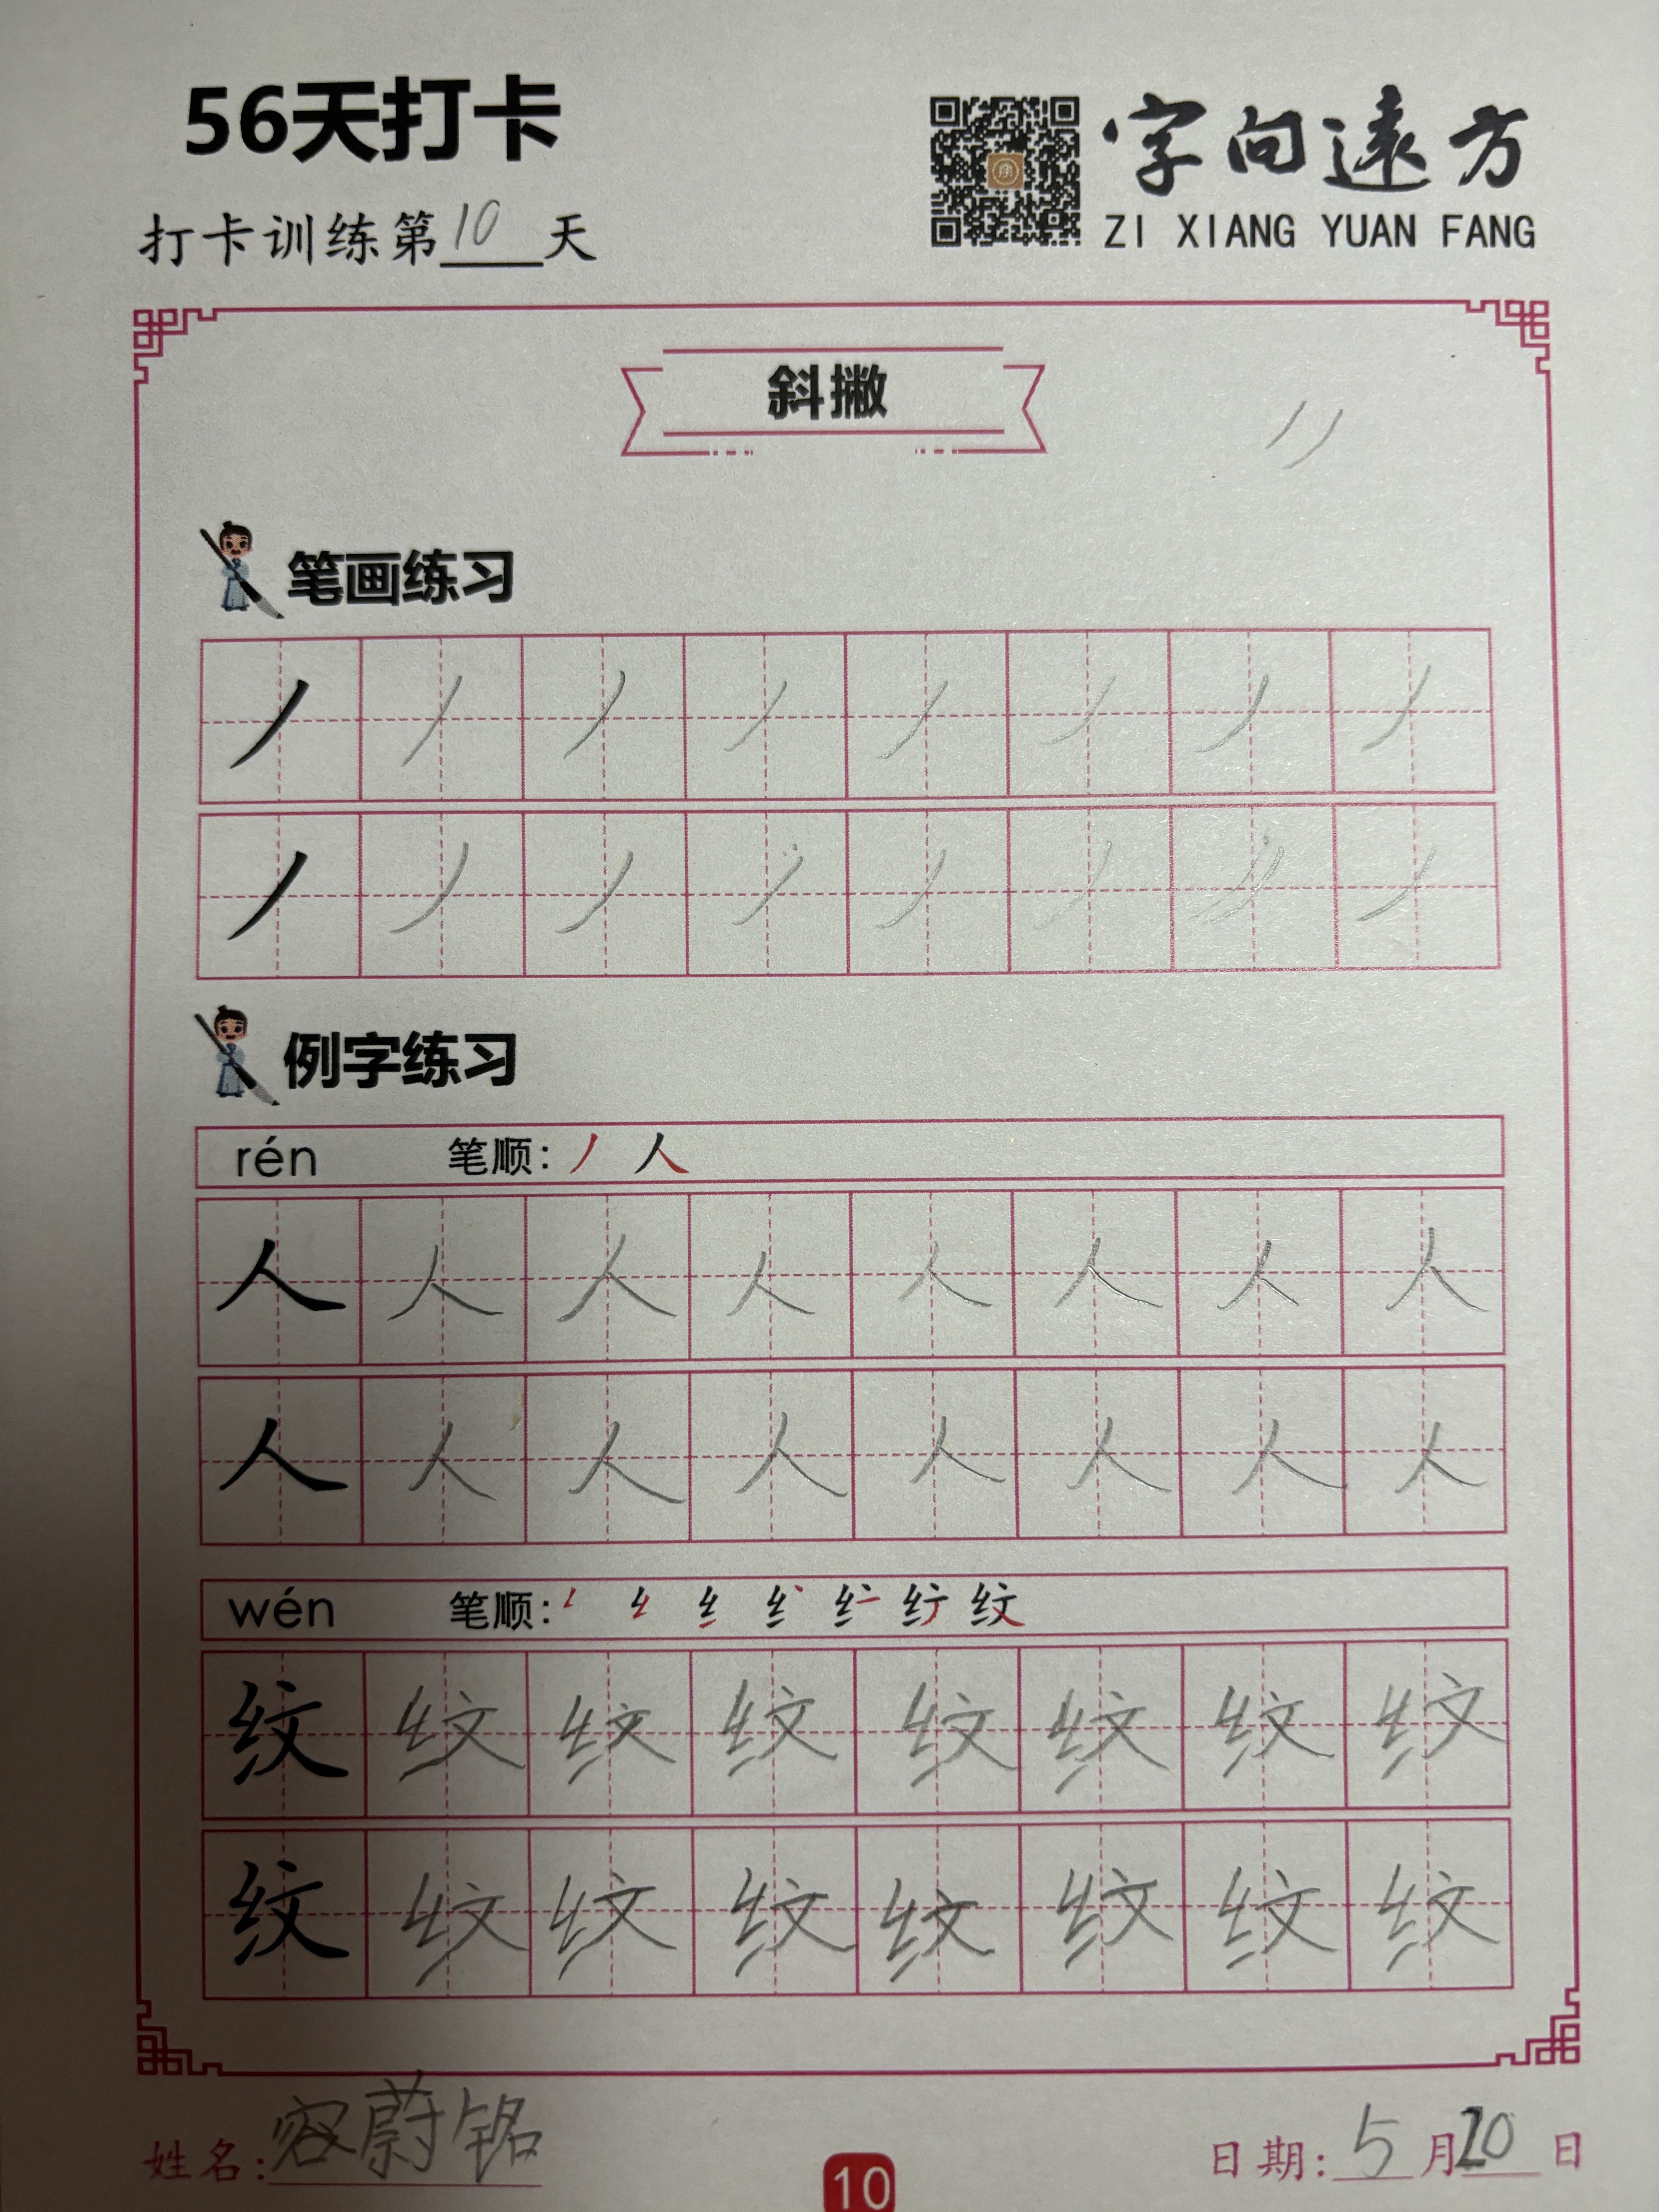 56天打卡
字向遠方
ZI XIANG YUAN FANG
打卡训练第10天
斜撇
笔画练习
丿 丿 丿 丿 丿 丿 丿 丿
丿 丿 丿 丿 丿 丿 丿 丿
例字练习
rén 笔顺: 丿 人
人 人 人 人 人 人 人 人
人 人 人 人 人 人 人 人
wén 笔顺: 纹
纹 纹 纹 纹 纹 纹 纹 纹
纹 纹 纹 纹 纹 纹 纹 纹
姓名: 容蔚铭
日期: 5月20日
10